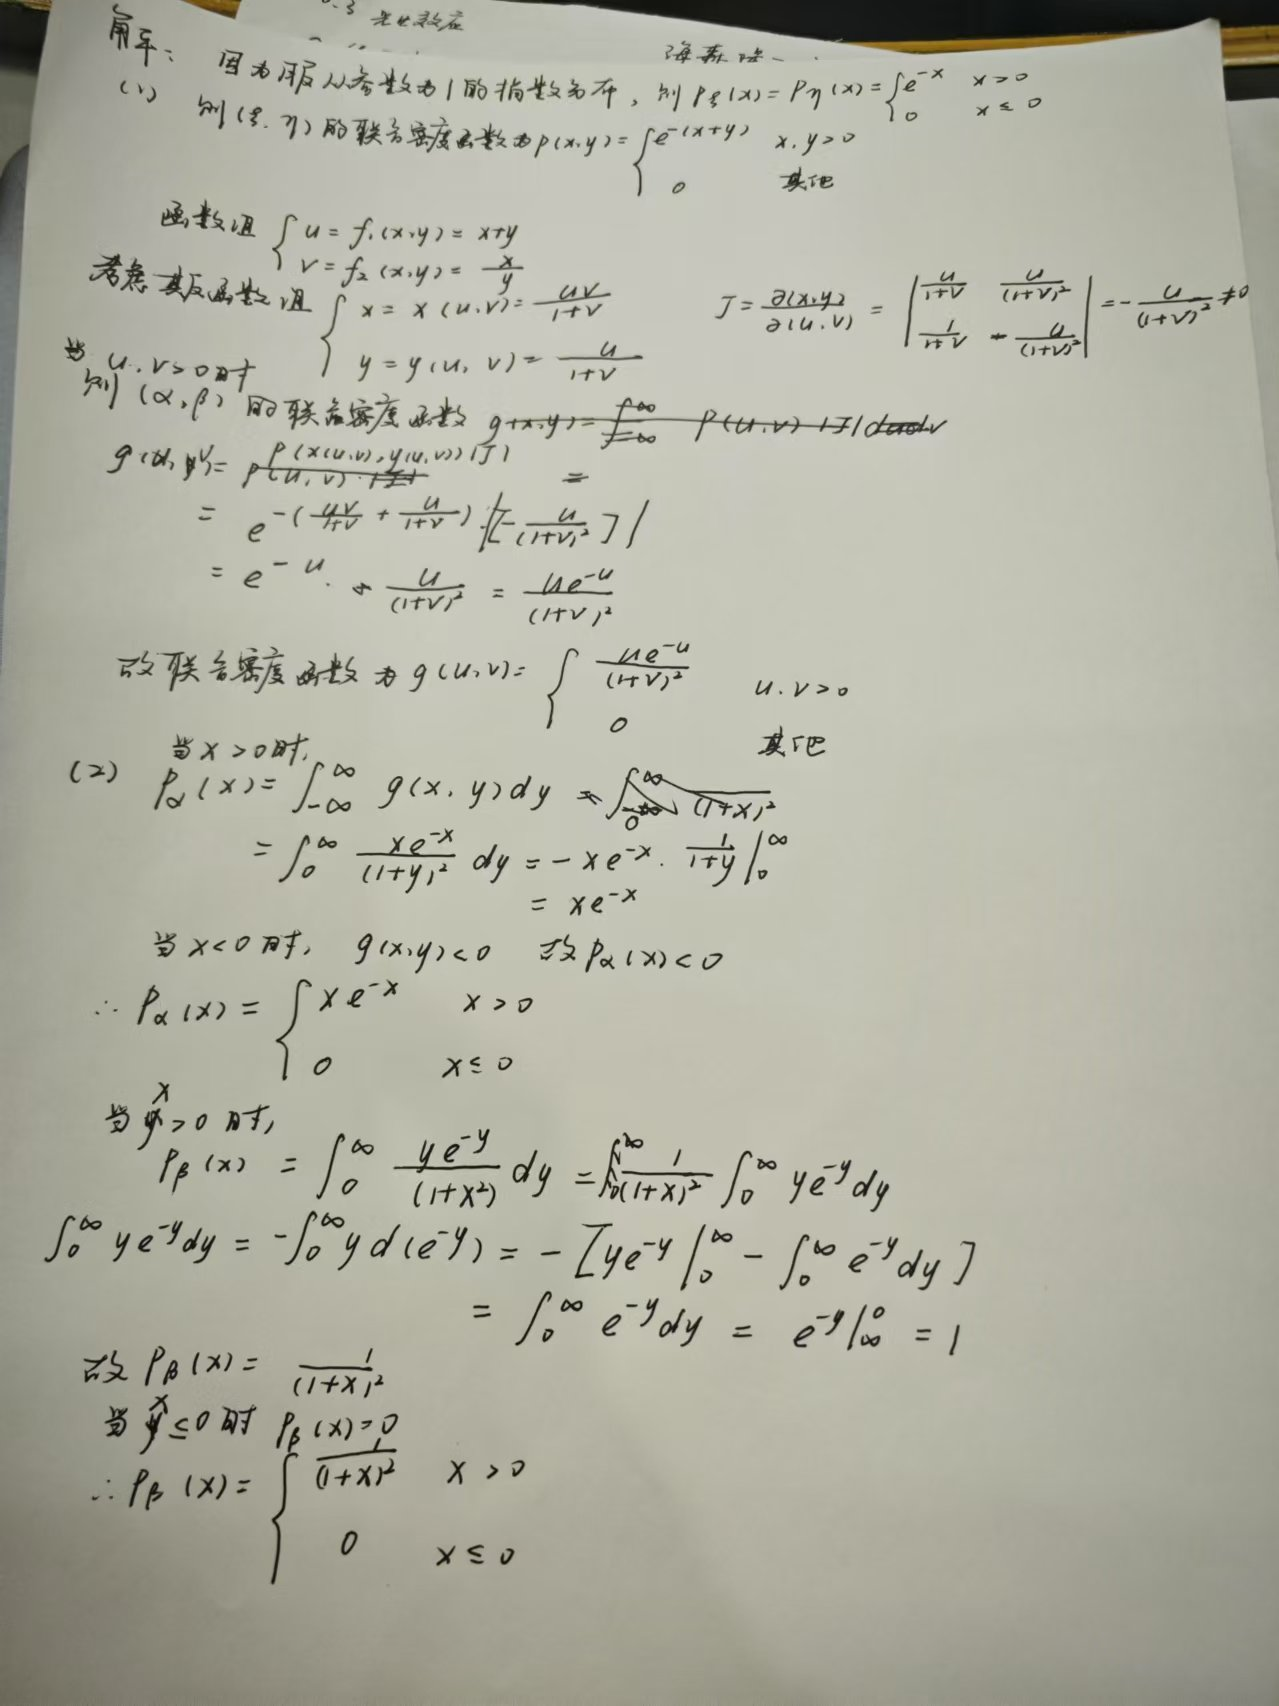 光电效应
解:
(1) 因为服从参数为1的指数分布,则 Pξ(x)=Pη(x)={e^{-x} x>0
0 x≤0
则(ξ,η)的联合密度函数为p(x,y)={e^{-(x+y)} x,y>0
0 其他
函数组 {u=f₁(x,y)=x+y
v=f₂(x,y)=x/y
考虑其反函数组 {x=x(u,v)=uv/(1+v)
y=y(u,v)=u/(1+v)
J=∂(x,y)/∂(u,v)=|v/(1+v) u/(1+v)²; 1/(1+v) -u/(1+v)²|=-u/(1+v)²≠0
当u,v>0时
则(α,β)的联合密度函数
g(u,v)=p(x(u,v),y(u,v))|J| =
=e^{-(uv/(1+v)+u/(1+v))}·|[-u/(1+v)²]|
=e^{-u}·u/(1+v)²=ue^{-u}/(1+v)²
故联合密度函数为g(u,v)={ue^{-u}/(1+v)² u,v>0
0 其他
(2) 当x>0时,
Pα(x)=∫_{-∞}^{∞} g(x,y)dy
=∫_0^∞ xe^{-x}/(1+y)² dy=-xe^{-x}·1/(1+y)|_0^∞
=xe^{-x}
当x<0时, g(x,y)<0 故Pα(x)<0
∴Pα(x)={xe^{-x} x>0
0 x≤0
当x>0时,
Pβ(x)=∫_0^∞ ye^{-y}/(1+x²) dy=1/(1+x)² ∫_0^∞ ye^{-y}dy
∫_0^∞ ye^{-y}dy=-∫_0^∞ yd(e^{-y})=-[ye^{-y}|_0^∞-∫_0^∞ e^{-y}dy]
=∫_0^∞ e^{-y}dy=e^{-y}|_∞^0=1
故Pβ(x)=1/(1+x)²
当x≤0时 Pβ(x)=0
∴Pβ(x)={1/(1+x)² x>0
0 x≤0